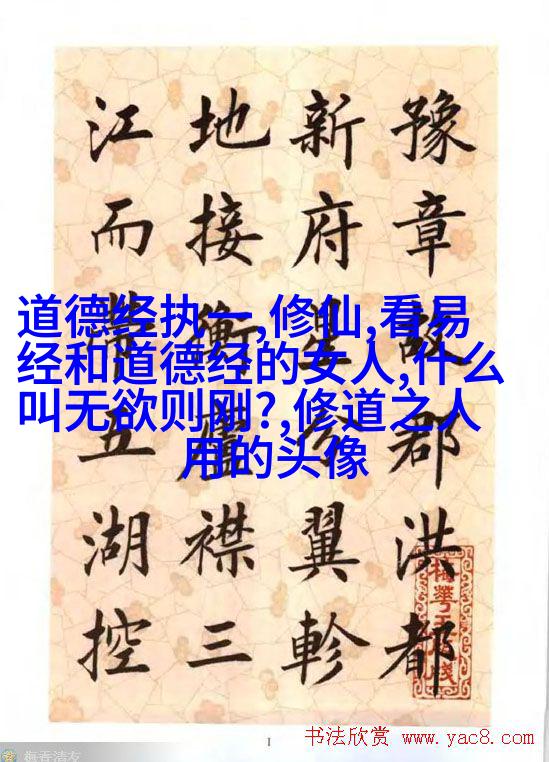 豫章故郡洪都
新府星分翼軫
地接衡廬襟三
江而帶五湖控
道德经执一,修仙,看易
经和道德经的女人,什么
叫无欲则刚?,修道之人
用的头像
1
书法欣赏 www.yac8.com
梅香清友